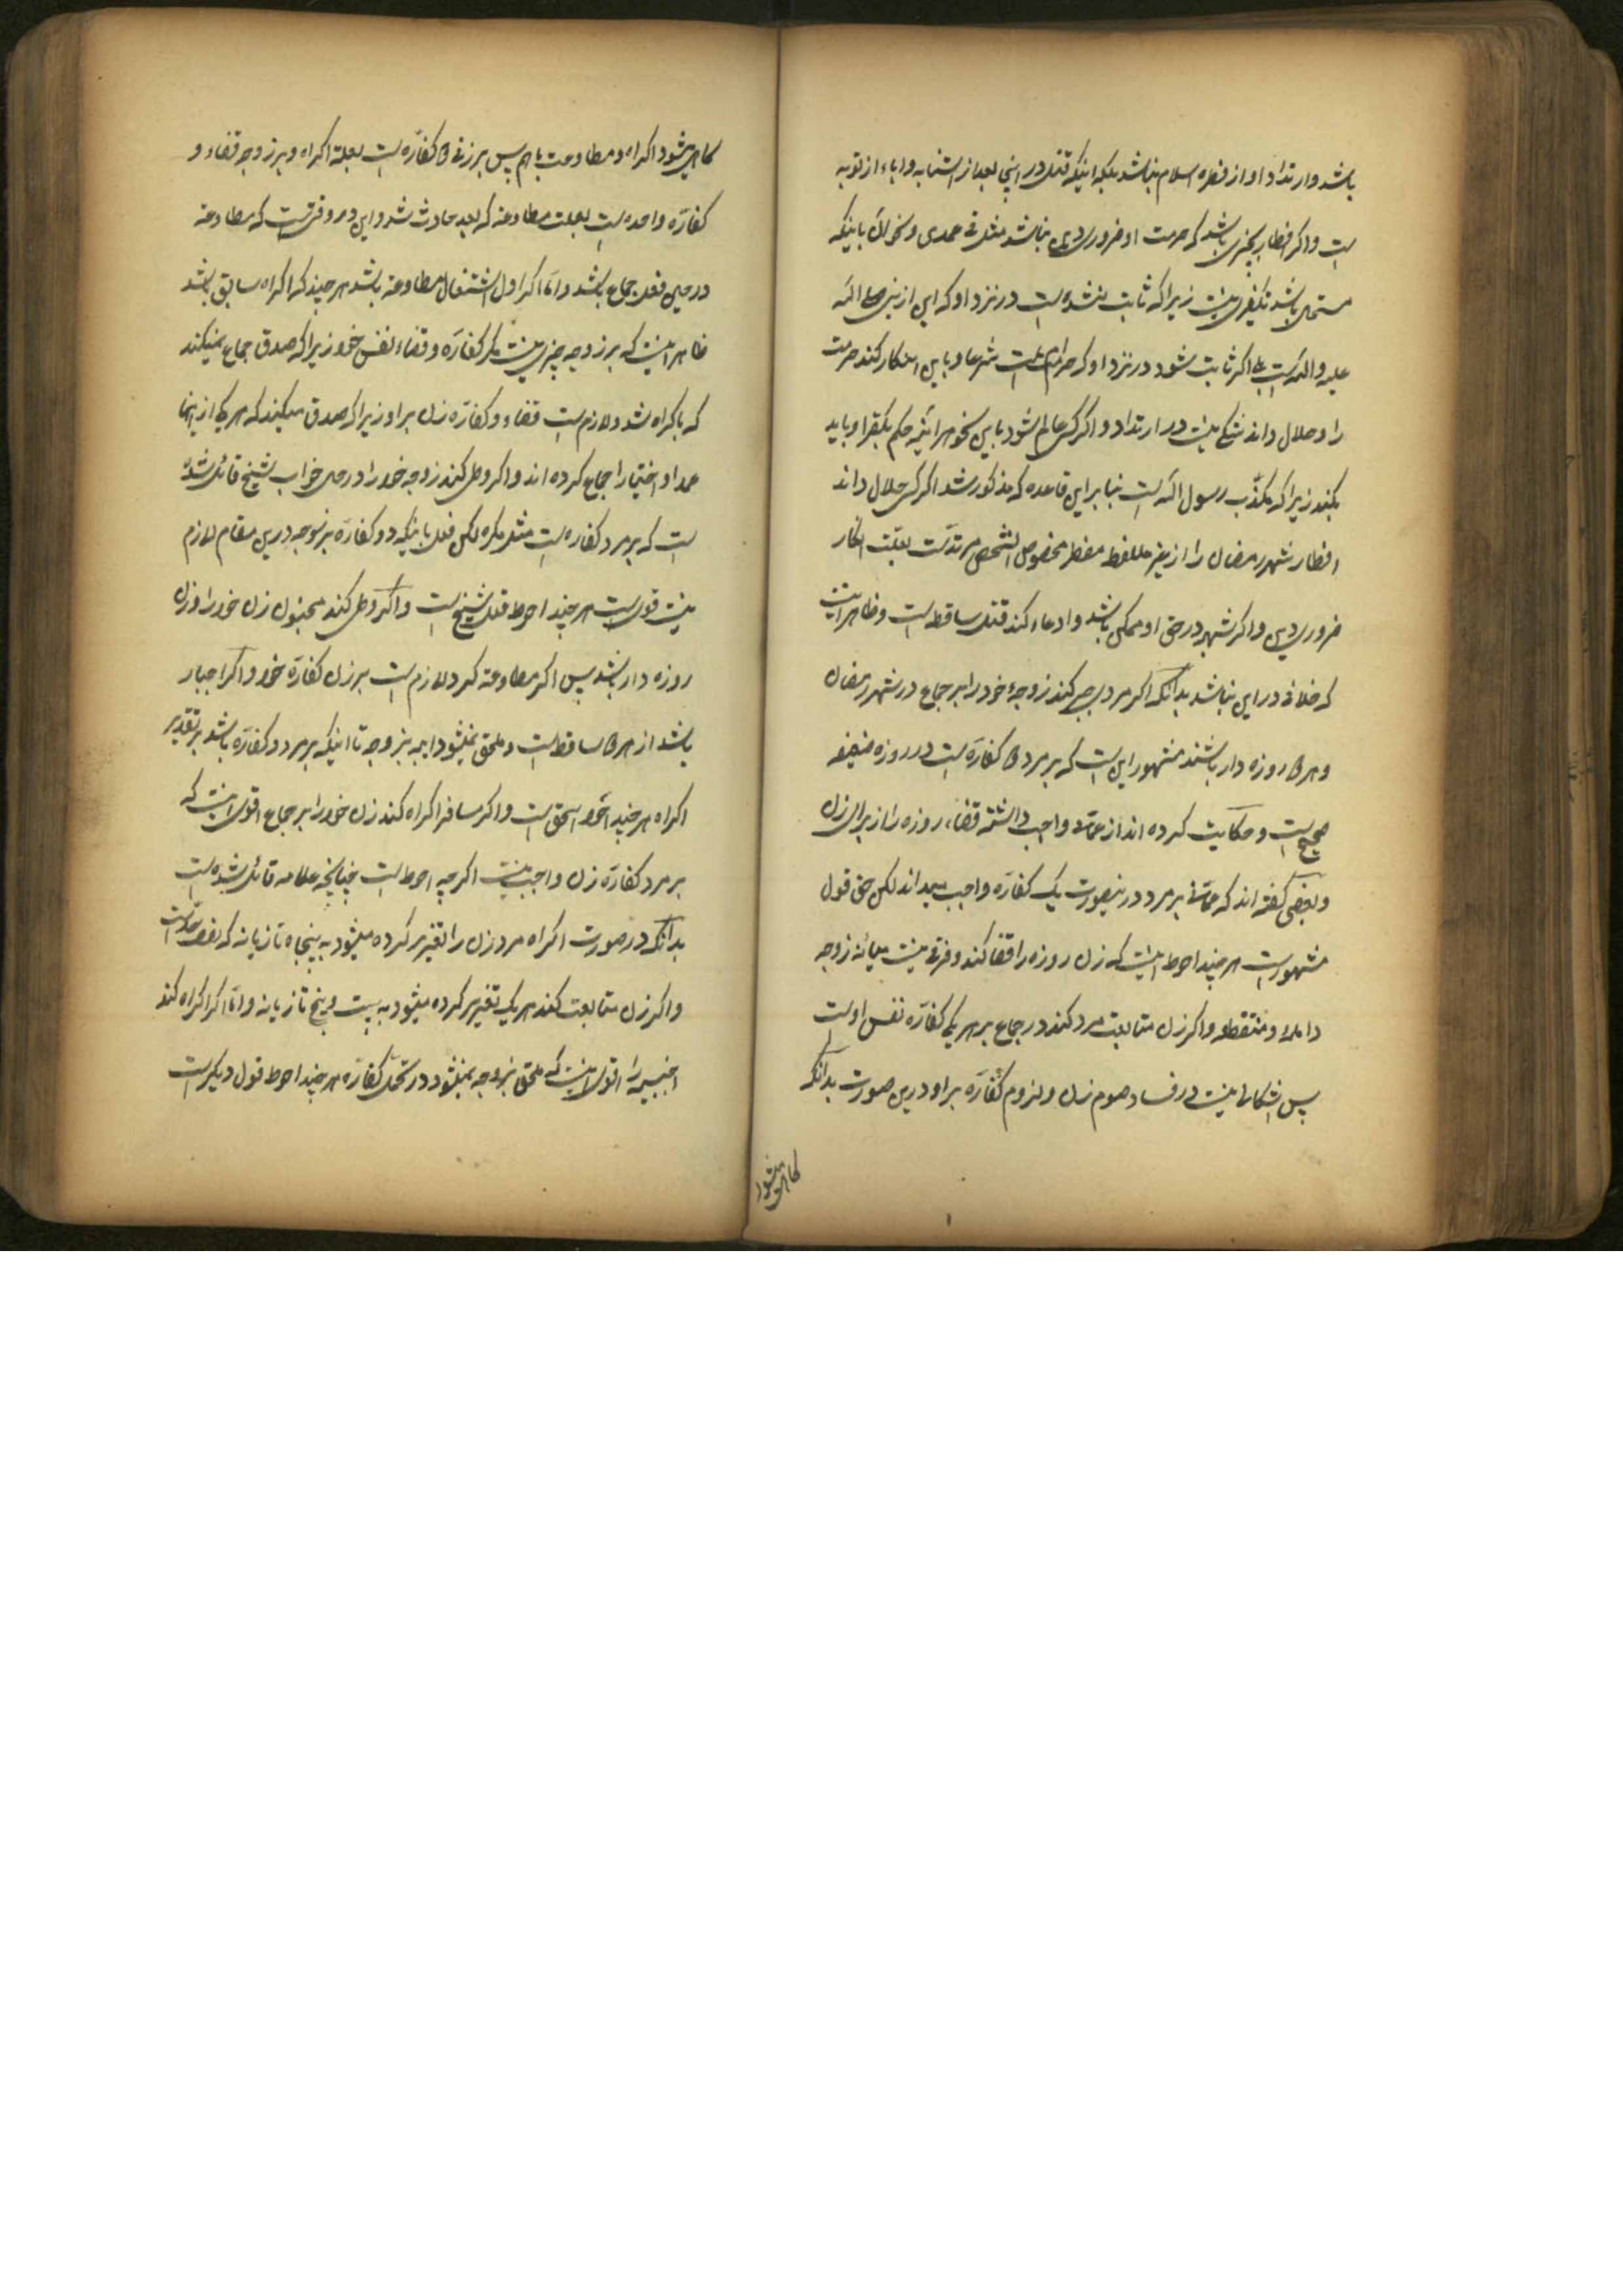 باشد و ارتداد او از فطره اسلام نباشد بلکه اینکه قتل در اینجا بعد از استتابه و اباء از توبه
است و اگر افطار بچیزی باشد که حرمت او ضروری دین نباشد مثل قی عمدی و نحو آن باینکه
مستحل باشد تکفیری نیست زیرا که ثابت نشده است در نزد او که این از نبی صلی الله
علیه و آله است بلی اگر ثابت شود در نزد او که حرام است شرعا و با این انکار کند حرمت
را و حلال داند شکی نیست در ارتداد و اگر کسی عالم شود باین نحو هر اینه حکم بکفر او باید
بکند زیرا که مکذّب رسول الله است بنا بر این قاعده که مذکور شد اگر کسی حلال داند
افطار شهر رمضان را از غیر ملاحظه مفطر مخصوص الشخص مرتدّست بعلّت انکار
ضروری دین و اگر شبهه در حق او ممکن باشد و ادعاء کند قتل ساقط است و ظاهر اینست
که خلافی در این نباشد بدانکه اگر مردی جبر کند زوجهٔ خود را بر جماع در شهر رمضان
و هر دو روزه دار باشند مشهور این است که بر مرد دو کفاره است و روزه ضعیفه
صحیح است و حکایت کرده اند از عمانی واجب دانسته قضاء روزه را از برای زن
و بعضی گفته اند که عمانی بر مرد درینصورت یک کفاره واجب میداند لکن حق قول
مشهور است هر چند احوط اینست که زن روزه را قضا کند و فرقی نیست میانه زوجه
دائمه و منقطعه و اگر زن متابعت مرد کند در جماع بر هر یکی کفاره نفس اوست
پس اشکالی نیست در فساد صوم زن و لزوم کفاره بر او درین صورت بدانکه
گاهی میشود
گاهی میشود اکراه و مطاوعت با هم پس بر زوج دو کفاره است بعلة اکراه و بر زوجه قضاء و
کفاره واحده است بعلت مطاوعه که بعد حادث شد و این در وقتی است که مطاوعه
در حین فعل جماع باشد و اما اگر اول اشتغال مطاوعه باشد هر چند که اکراه سابق باشد
ظاهر اینست که بر زوجه چیزی نیست مگر کفاره و قضاء نفس خود زیرا که صدق جماع نمیکند
که باکراه شد و لازم است قضاء و کفاره زن بر او زیرا که صدق میکند که هر یک از اینها
عمدا و اختیارا جماع کرده اند و اگر وطی کند زوجه خود را در حال خواب شیخ قائل شده
است که بر مرد کفاره است مثل مکره لکن فعل باینکه دو کفاره بر زوج درین مقام لازم
نیست قوی است هر چند احوط قول شیخ است و اگر وطی کند مجنون زن خود را و زن
روزه دار باشد پس اگر مطاوعه کرد لازم است بر زن کفاره خود و اگر اجبار
باشد از هر دو ساقط است و ملحق نمیشود امه بزوجه تا اینکه بر مرد دو کفاره باشد بر تقدیر
اکراه هر چند احوط الحق است و اگر مسافر اکراه کند زن خود را بر جماع اقوی اینست که
بر مرد کفاره زن واجب نیست اگر چه احوط است چنانچه علامه قائل شده است
بدانکه در صورت اکراه مرد زن را تعزیر کرده میشود به پنجاه تازیانه که نصف حدّ است
و اگر زن متابعت کند هر یک تعزیر کرده میشود به بیست و پنج تازیانه و امّا اگر اکراه کند
اجنبیه را اقوی اینست که ملحق بزوجه نمیشود در تحمّل کفاره هر چند احوط قول دیگر است